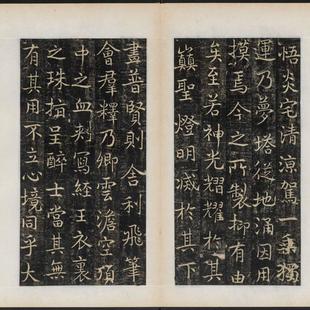 悟炎宅清涼駕一乘獨
運乃夢塔從地涌因用
摸焉今之所製抑有由
矣至若神光耀耀於其
巔聖燈明滅於其下
畫普賢則舍利飛筆
會羣釋乃卿雲澹空
中之血寫經王衣裏
之珠指呈醉士當其無
有其用不立心境同乎大